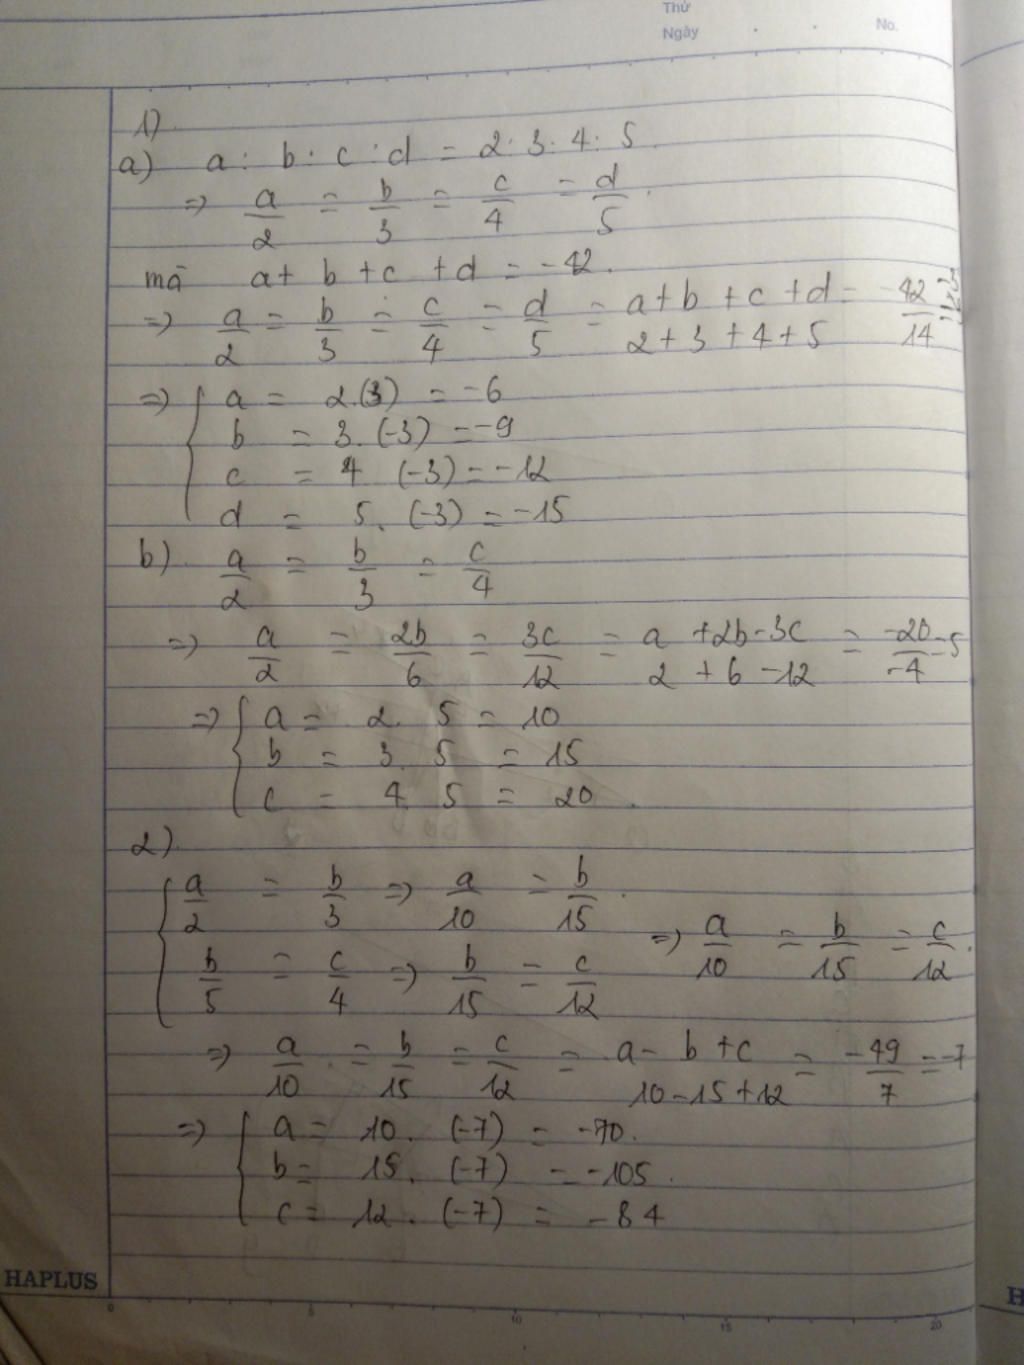 Thứ
Ngày No.
1)
a) a : b : c : d = 2 : 3 : 4 : 5
=> a/2 = b/3 = c/4 = d/5.
mà a + b + c + d = -42.
=> a/2 = b/3 = c/4 = d/5 = a+b+c+d/2+3+4+5 = -42/14
=> { a = 2.(3) = -6
b = 3.(-3) = -9
c = 4 (-3) = -12
d = 5.(-3) = -15
b) a/2 = b/3 = c/4
=> a/2 = 2b/6 = 3c/12 = a+2b-3c/2+6-12 = -20/-4 = 5
=> { a = 2. 5 = 10
b = 3. 5 = 15
c = 4. 5 = 20.
2)
{ a/2 = b/3 => a/10 = b/15.
b/5 = c/4 => b/15 = c/12
=> a/10 = b/15 = c/12.
=> a/10 = b/15 = c/12 = a-b+c/10-15+12 = -49/7 = -7
=> { a = 10. (-7) = -70.
b = 15. (-7) = -105.
c = 12. (-7) = -84
HAPLUS
H
0 5 10 15 20